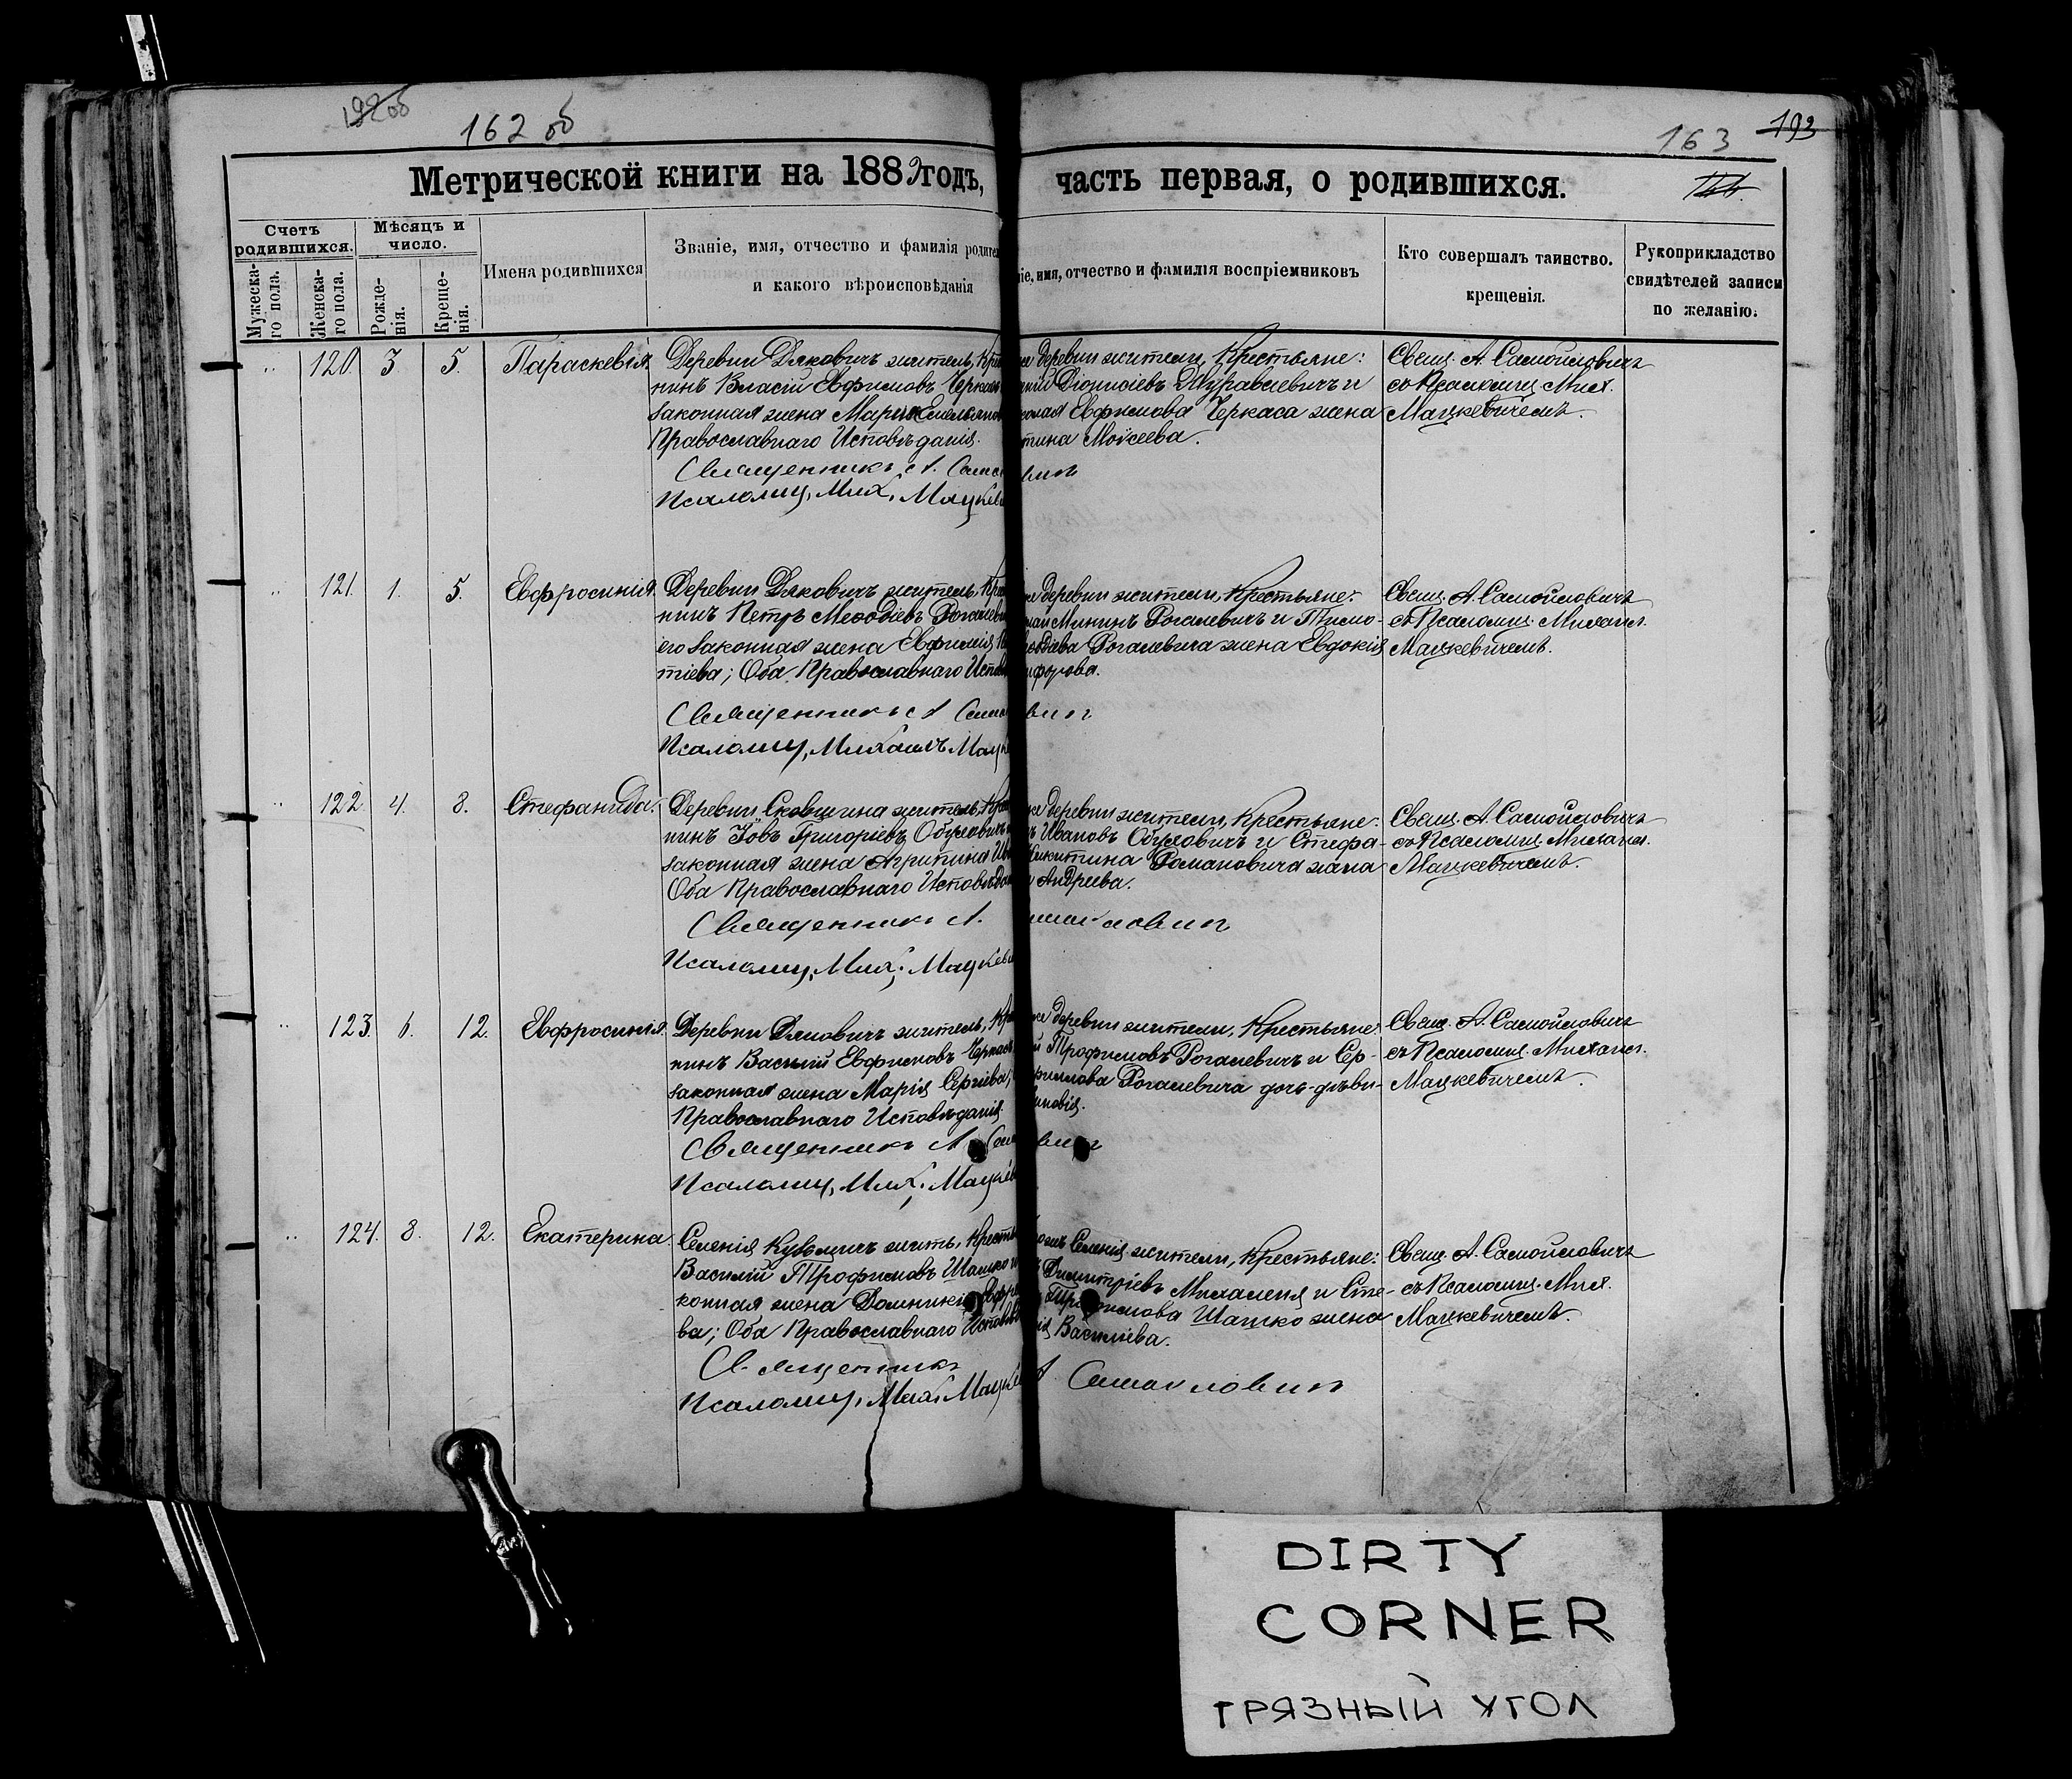 192 об
162 об
163 193
Метрической книги на 1882 годъ, часть первая, о родившихся.
Счетъ родившихся.
Мѣсяцъ и число.
Мужеска-го пола.
Женска-го пола.
Рожде-нія.
Креще-нія.
Имена родившихся
Званіе, имя, отчество и фамилія
и какого вѣроисповѣданія
имя, отчество и фамилія воспріемниковъ
Кто совершалъ таинство.
крещенія.
Рукоприкладство
свидѣтелей записи
по желанію.
120. 3 5. Параскевія.
Деревни Дяковичъ житель,
нинъ Власій Евфимовъ
законная жена Марія
Православнаго Исповѣданія.
Священникъ А.
Псаломщ. Мих.
деревни жители, Крестьяне:
Діонисіевъ Журавлевичъ и
Евфимова Черкаса жена
Моѵсеева.
Свящ. А. Самойловичъ
съ Псаломщ. Мих.
Мацкевичемъ.
121. 1. 5. Евфросинія.
Деревни Дяковичъ житель,
нинъ Петръ Меѳодіевъ
его законная жена Евфимія
тіева; Оба Православнаго
Священникъ А
Псаломщ. Михаилъ
деревни жители, Крестьяне:
Мининъ Рогалевичъ и Тимо-
Рогалевича жена Евдокія
Свящ. А. Самойловичъ
съ Псаломщ. Михаил.
Мацкевичемъ.
122 4. 8. Стефанида.
Деревни Сковшина житель,
нинъ Іовъ Григоріевъ
законная жена Агрипина
Оба Православнаго
Священникъ А.
Псаломщ. Мих.
деревни жители, Крестьяне:
Ивановъ Обуховичъ и Стефа-
Никитина Романовича жена
Андреева.
Свящ. А. Самойловичъ
съ Псаломщ. Михаил.
Мацкевичемъ.
123. 6. 12. Евфросинія.
Деревни Дяковичъ житель,
нинъ Василій Евфимовъ
законная жена Марія Сергіева;
Православнаго Исповѣданія.
Священникъ А
Псаломщ. Мих.
деревни жители, Крестьяне:
Трофимовъ Рогалевичъ и Сер-
Рогалевича дочь-дѣви-
Свящ. А. Самойловичъ
съ Псаломщ. Михаил.
Мацкевичемъ.
124. 8. 12. Екатерина.
Селенія Кузьмичъ жить,
Василій Трофимовъ Шашко
конная жена Домникія
ва; Оба Православнаго
Священникъ
Псаломщ. Мих.
Селенія жители, Крестьяне:
Димитріевъ Михаленя и Сте-
Трофимова Шашко жена
Василіева.
А Самойловичъ
Свящ. А. Самойловичъ
съ Псаломщ. Мих.
Мацкевичемъ.
DIRTY
CORNER
ГРЯЗНЫЙ УГОЛ